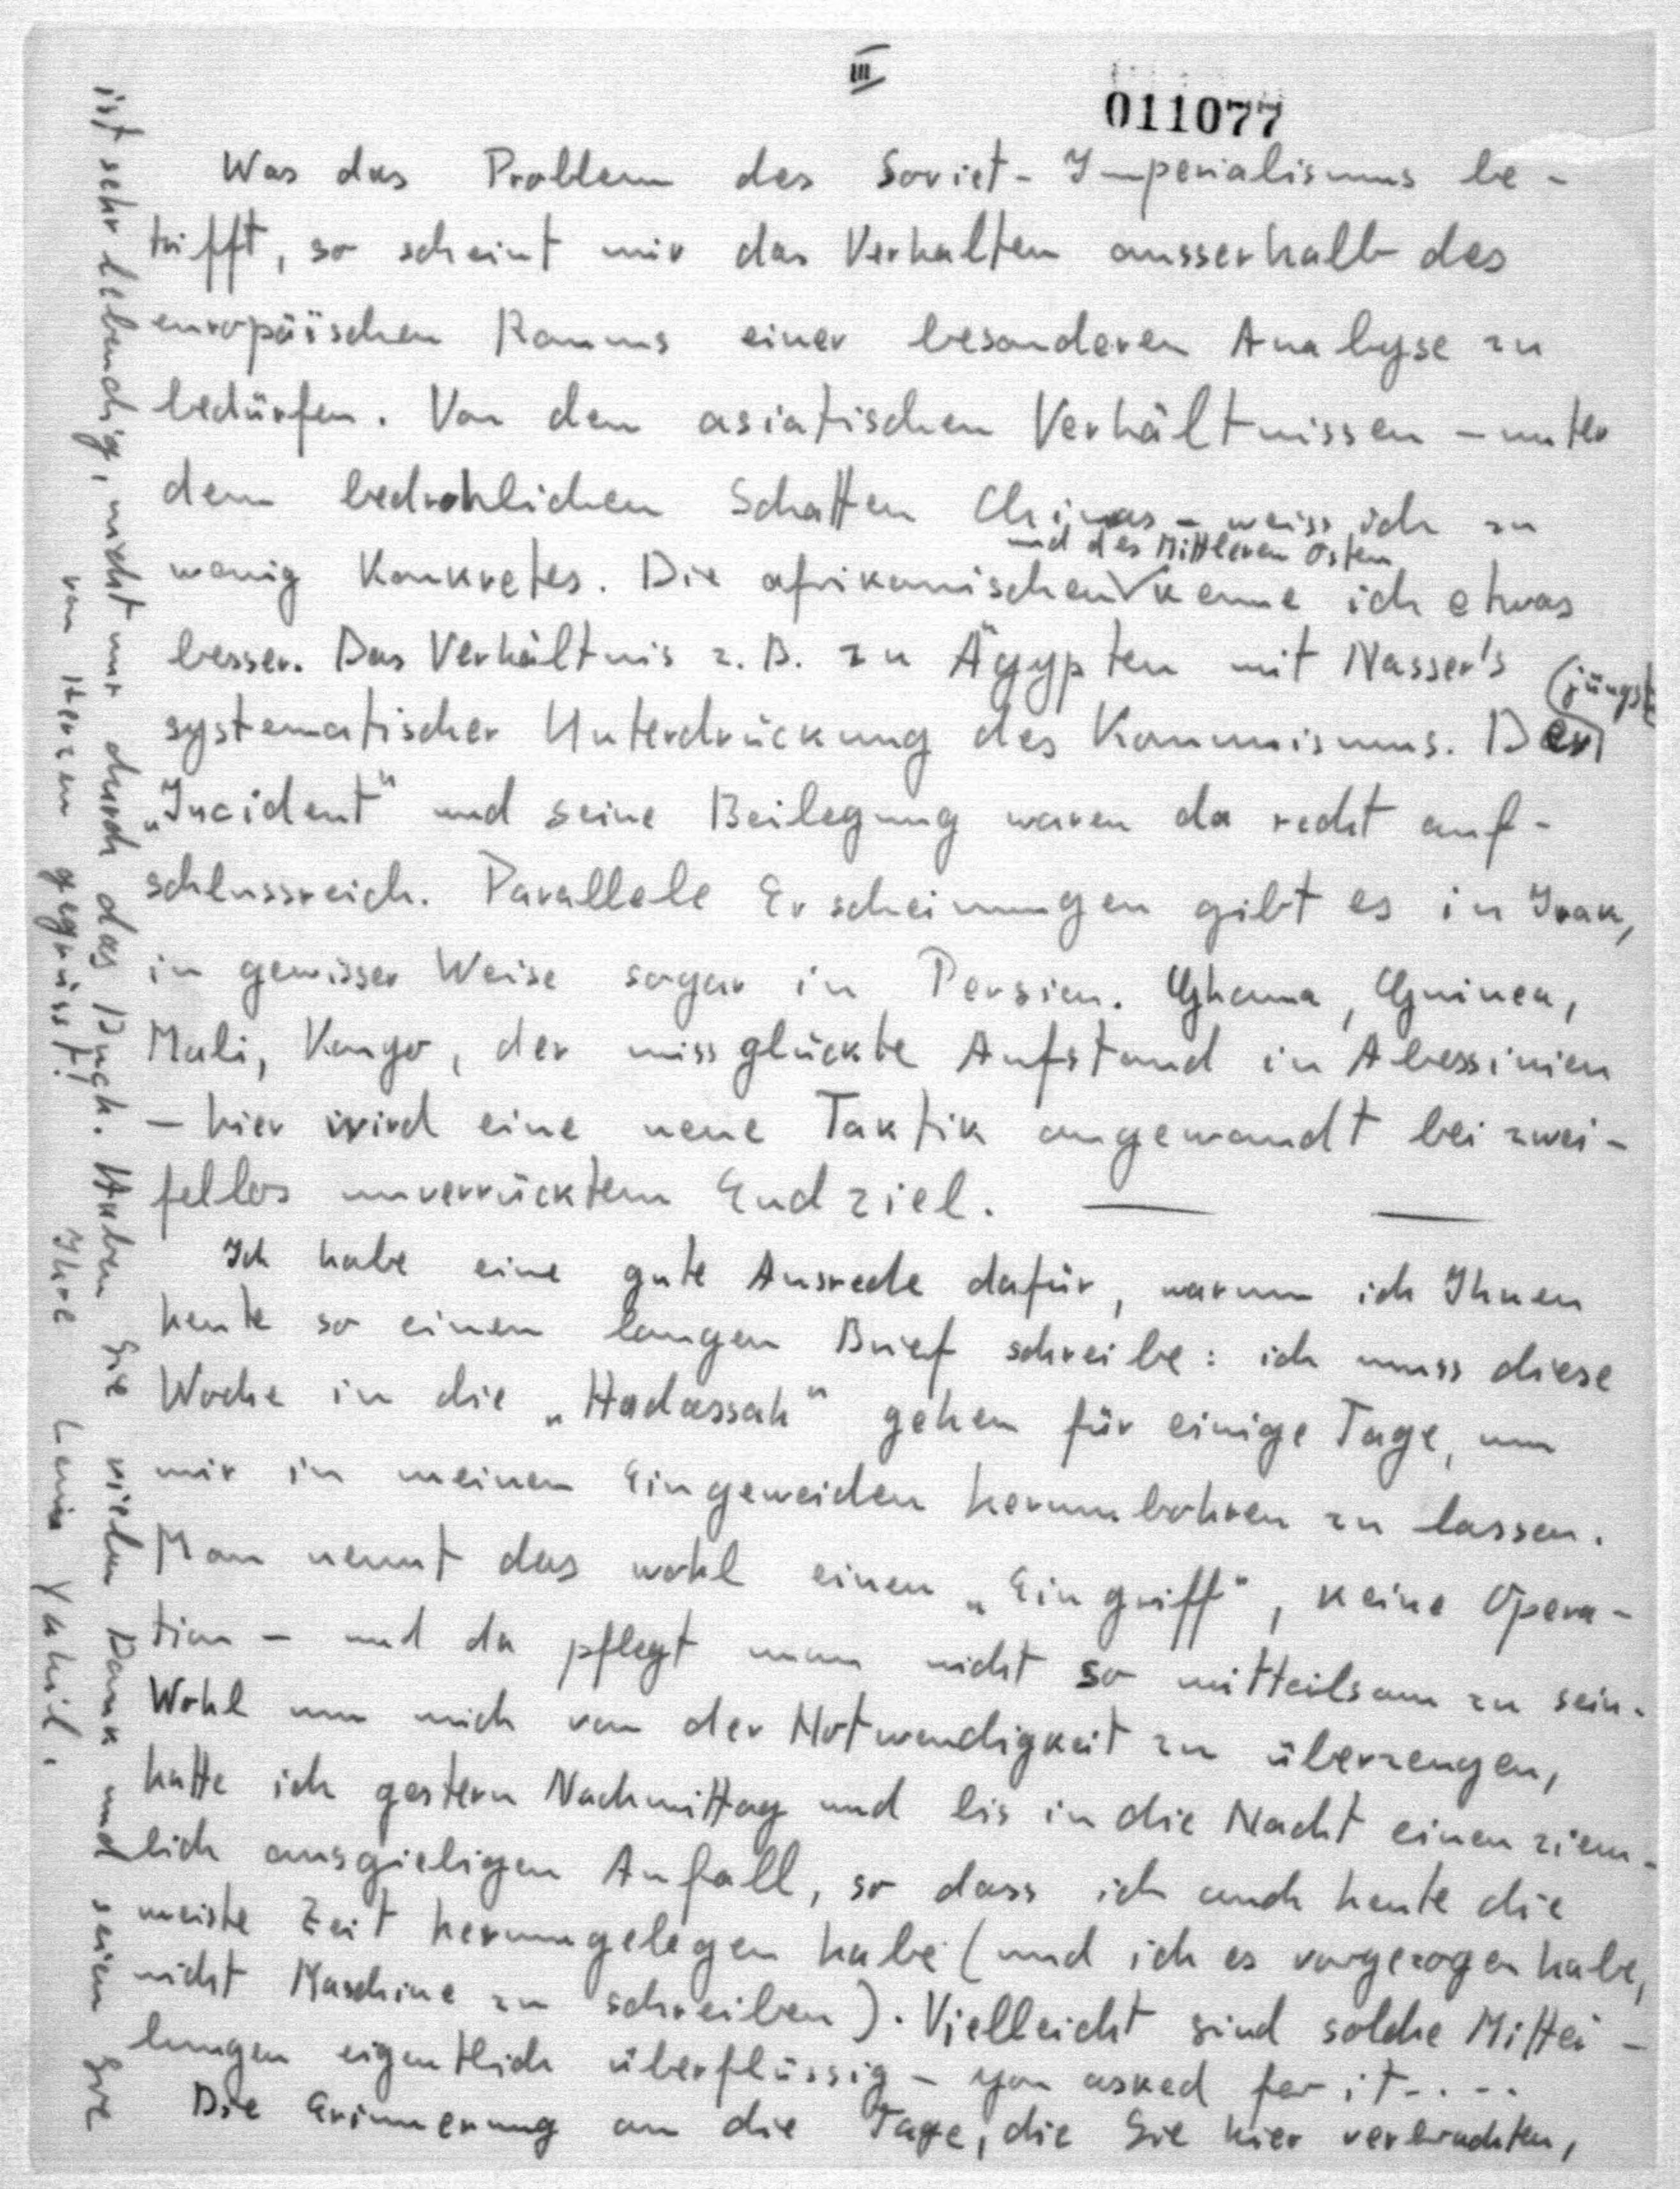 III
011077
Was das Problem des Soviet-Imperialismus be-
trifft, so scheint mir das Verhalten ausserhalb des
europäischen Raums einer besonderen Analyse zu
bedürfen. Von den asiatischen Verhältnissen - unter
dem bedrohlichen Schatten Chinas - weiss ich zu
und des Mittleren Osten
wenig Konkretes. Die afrikanischen kenne ich etwas
besser. Das Verhältnis z. B. zu Ägypten mit Nasser's
(jüngste
systematischer Unterdrückung des Kommunismus. Der
„Incident" und seine Beilegung waren da recht auf-
schlussreich. Parallele Erscheinungen gibt es in Irak,
in gewisser Weise sogar in Persien. Ghana, Guinea,
Mali, Kongo, der missglückte Aufstand in Abessinien
- hier wird eine neue Taktik angewandt bei zwei-
fellos unverrücktem Endziel. — —
Ich habe eine gute Ausrede dafür, warum ich Ihnen
heute so einen langen Brief schreibe: ich muss diese
Woche in die „Hadassah" gehen für einige Tage, um
mir in meinen Eingeweiden herumbohren zu lassen.
Man nennt das wohl einen „Eingriff", keine Opera-
tion - und da pflegt man nicht so mitteilsam zu sein.
Wohl um mich von der Notwendigkeit zu überzeugen,
hatte ich gestern Nachmittag und bis in die Nacht einen ziem-
lich ausgiebigen Anfall, so dass ich auch heute die
meiste Zeit herumgelegen habe (und ich es vorgezogen habe,
nicht Maschine zu schreiben). Vielleicht sind solche Mittei-
lungen eigentlich überflüssig - you asked for it....
Die Erinnerung an die Tage, die Sie hier verbrachten,
ist sehr lebendig, nicht nur durch das Buch. Haben Sie vielen Dank und seien Sie
von Herzen gegrüsst! Ihre Leni Yahil.